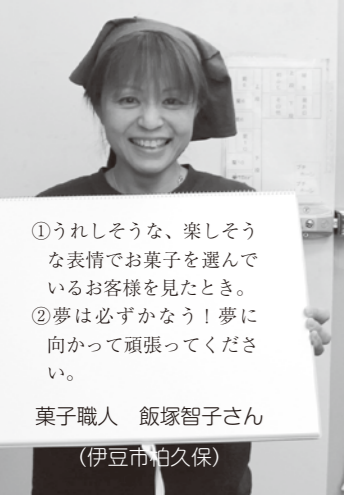 ①うれしそうな、楽しそう
な表情でお菓子を選んで
いるお客様を見たとき。
②夢は必ずかなう！夢に
向かって頑張ってくださ
い。
菓子職人　飯塚智子さん
（伊豆市柏久保）